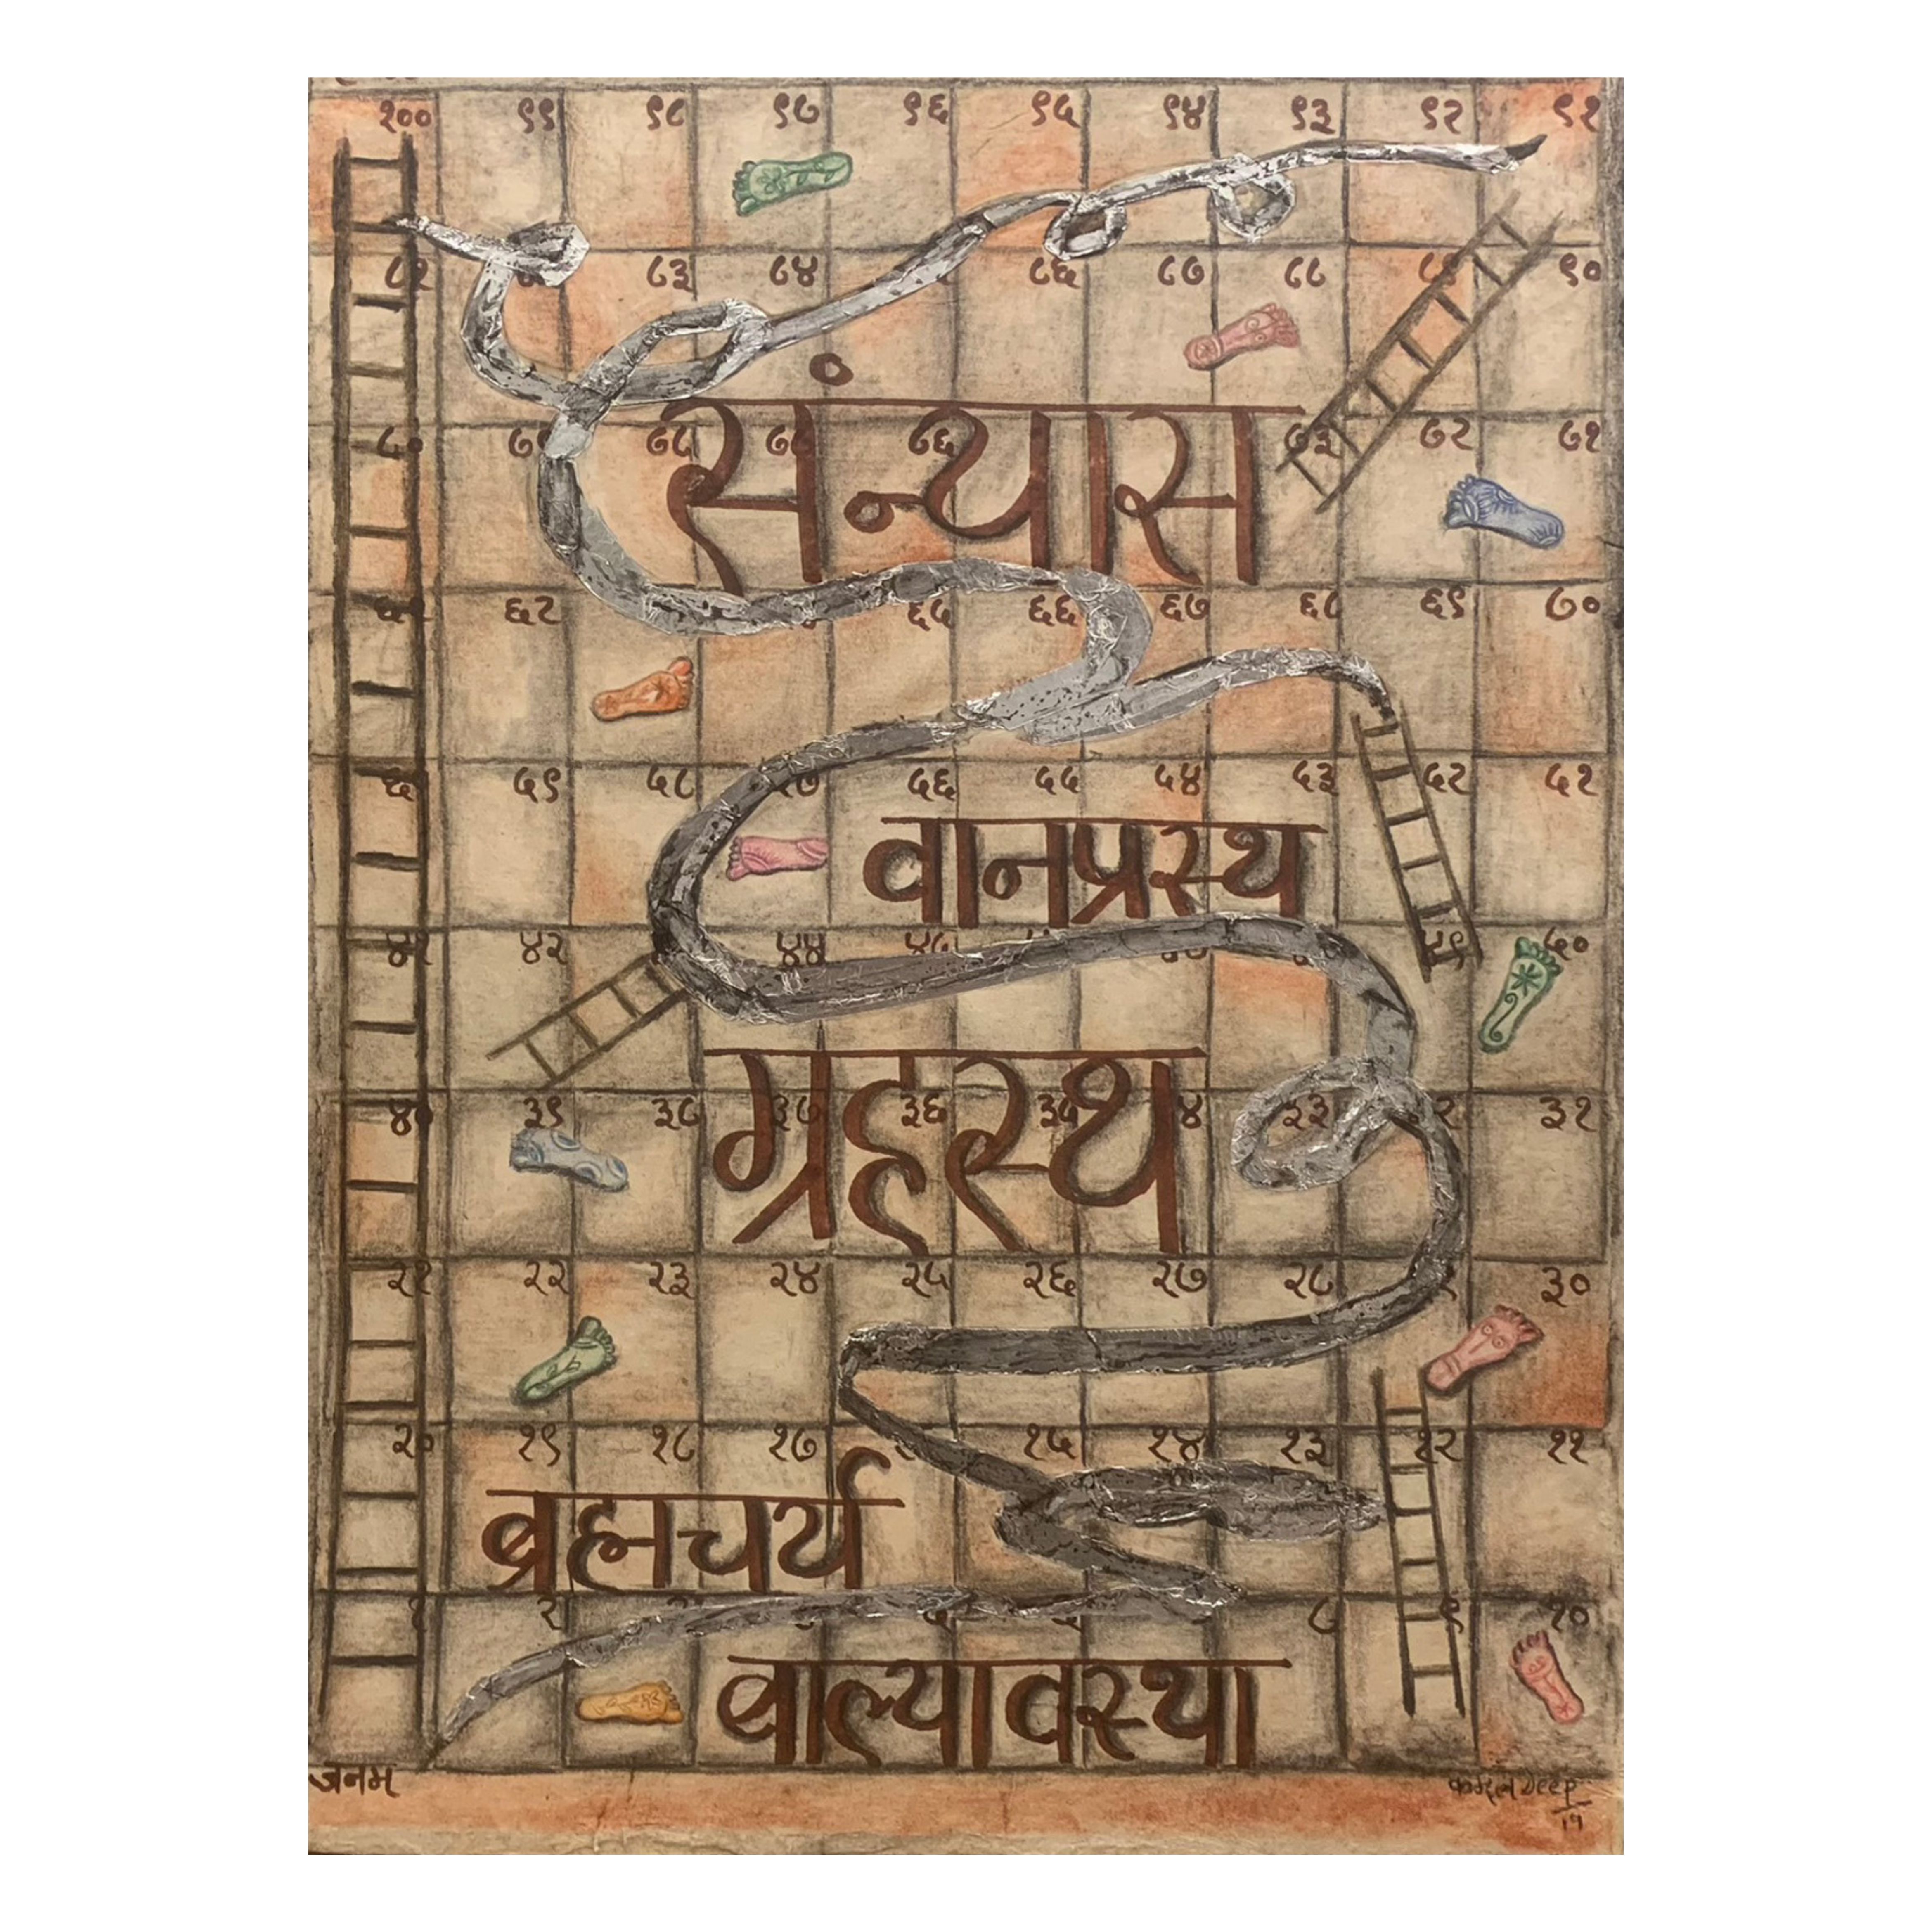 १०० ९९ ९८ ९७ ९६ ९५ ९४ ९३ ९२ ९१
८१ ८३ ८४ ८६ ८७ ८८ ८९ ९०
८० ७८ ७७ ७६ ७३ ७२ ७१
संन्यास
६१ ६२ ६५ ६६ ६७ ६८ ६९ ७०
५९ ५८ ५७ ५६ ५५ ५४ ५३ ५२ ५१
वानप्रस्थ
४१ ४२ ४४ ४५ ४९ ५०
ग्रहस्थ
४० ३९ ३८ ३७ ३६ ३५ ३३ ३१
२१ २२ २३ २४ २५ २६ २७ २८ ३०
२० १९ १८ १७ १५ १४ १३ १२ ११
ब्रह्मचर्य
१ २ ८ ९ १०
बाल्यावस्था
जनम
कमल Deep
19